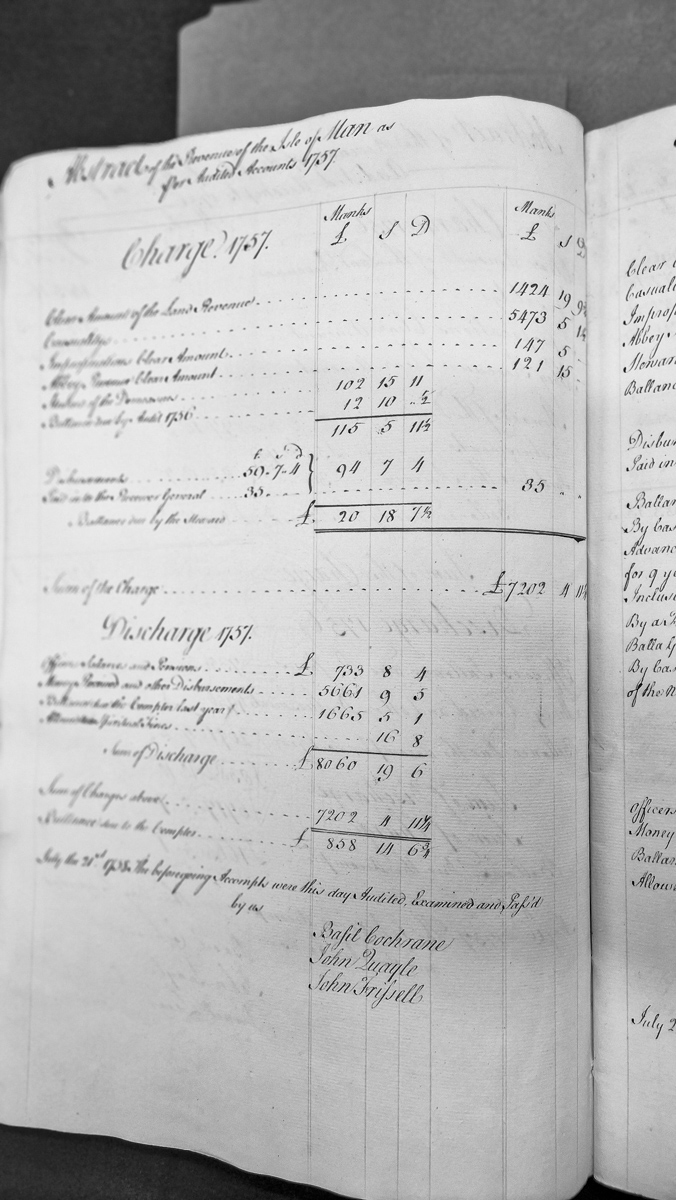 Abstract of the Revenue of the Isle of Man as
for Audited Accounts 1757
Manks Manks
£ S D £ S D
Charge 1757.
Clear Amount of the Land Revenue 1424 19 9½
Casualties 5473 5 1¼
Impropriations Clear Amount 147 5 "
Abbey Revenue Clear Amount 121 15 "
of the Demesnes 102 15 11
Ballance due by Audit 1756 12 10 "½
115 5 11½
£ S d
Disbursements 59.7.4 } 94 7 4
Paid in to the Receiver General 35. 35 " "
Ballance due by the Steward £ 20 18 7½
Summ of the Charge £7202 4 11¼
Discharge 1757.
Officers Salaries and Pensions £ 733 8 4
Money Received and other Disbursements 5661 9 5
Ballance due the Compter last year 1665 5 1
Allowance Spiritual Fines 16 8
Sum of Discharge £8060 19 6
Sum of Charges above 7202 4 11¼
Ballance due to the Compter £ 858 14 6¾
July the 21st 1758 The foregoing Accompts were this day Audited, Examined and Pass'd
by us
Basil Cochrane
John Quayle
John Frissell
Clear
Casual
Improp
Abbey
Stewar
Ballan
Disbu
Paid in
Ballan
By Cas
Advanc
for 9 y
Inclusi
By a
Balla
By Cas
of the
Officers
Money
Ballan
Allow
July 2